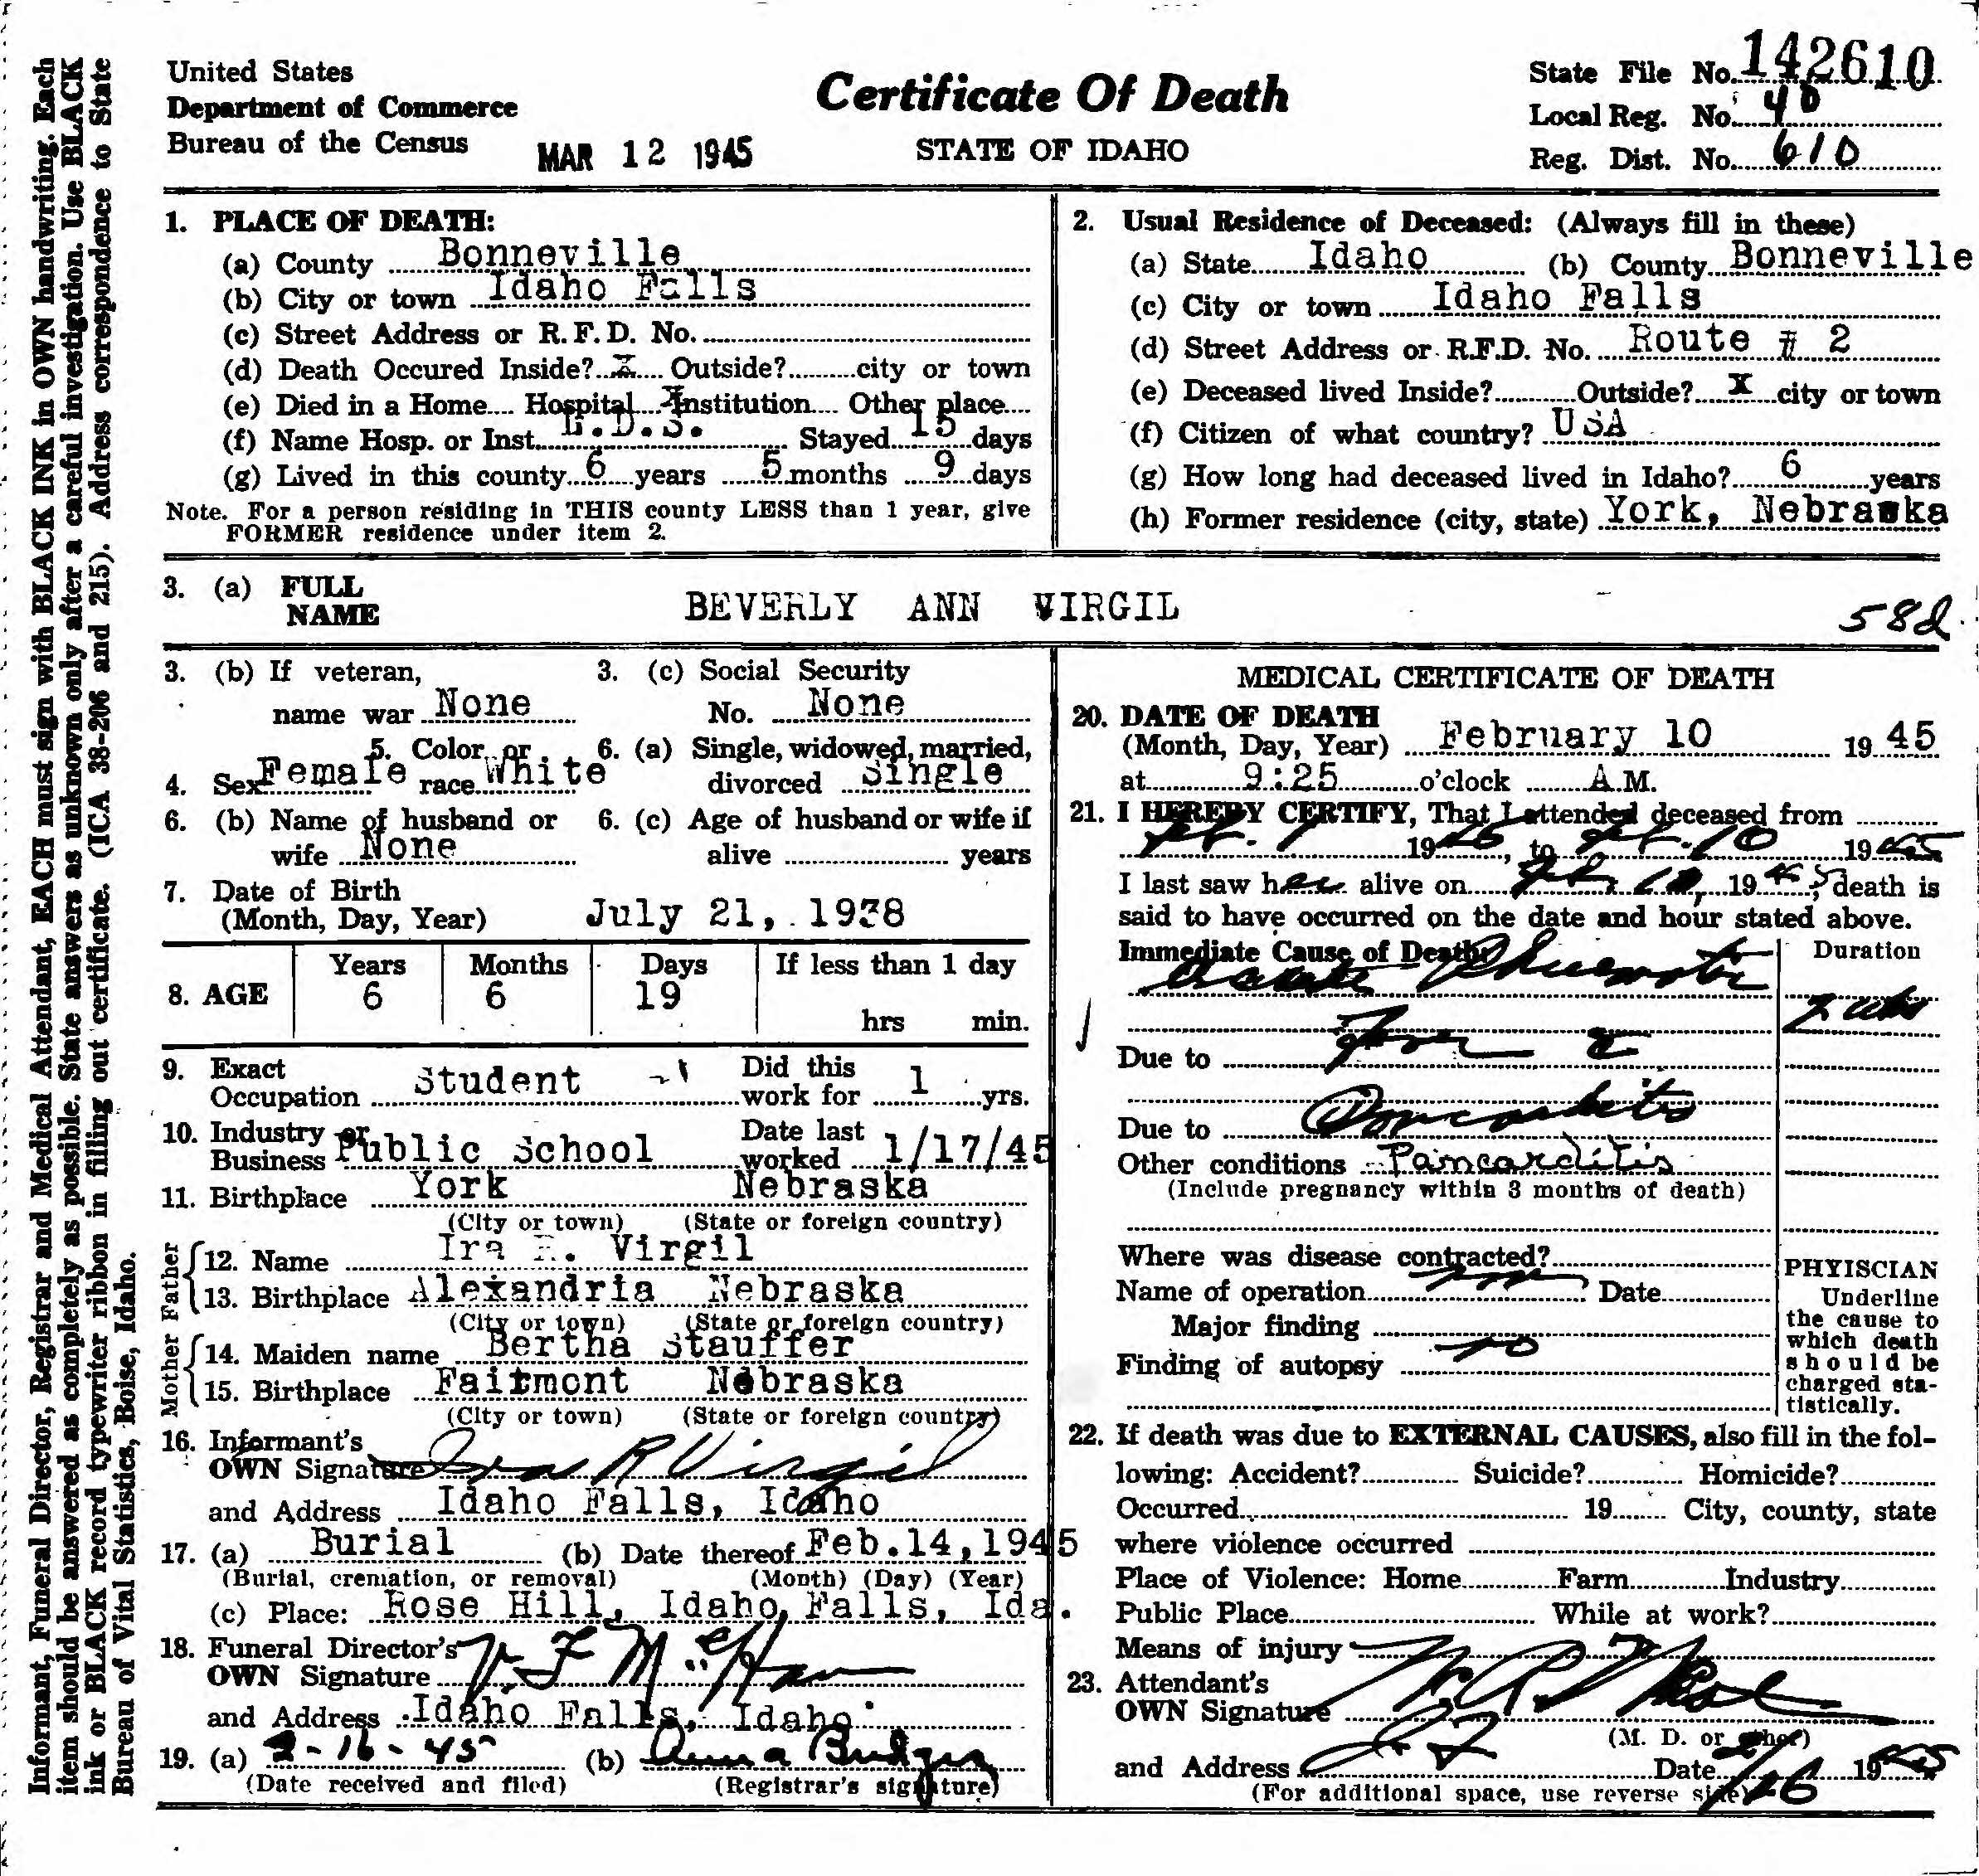 United States
Department of Commerce
Bureau of the Census
MAR 12 1945
Certificate Of Death
STATE OF IDAHO
State File No. 142610
Local Reg. No. 40
Reg. Dist. No. 610
Informant, Funeral Director, Registrar and Medical Attendant, EACH must sign with BLACK INK in OWN handwriting. Each
item should be answered as completely as possible. State answers as unknown only after a careful investigation. Use BLACK
ink or BLACK record typewriter ribbon in filling out certificate. (ICA 38-206 and 215). Address correspondence to State
Bureau of Vital Statistics, Boise, Idaho.
1. PLACE OF DEATH:
(a) County Bonneville
(b) City or town Idaho Falls
(c) Street Address or R.F.D. No.
(d) Death Occured Inside? X Outside? city or town
(e) Died in a Home Hospital X Institution Other place
(f) Name Hosp. or Inst. L.D.S. Stayed 15 days
(g) Lived in this county 6 years 5 months 9 days
Note. For a person residing in THIS county LESS than 1 year, give
FORMER residence under item 2.
2. Usual Residence of Deceased: (Always fill in these)
(a) State Idaho (b) County Bonneville
(c) City or town Idaho Falls
(d) Street Address or R.F.D. No. Route # 2
(e) Deceased lived Inside? Outside? X city or town
(f) Citizen of what country? USA
(g) How long had deceased lived in Idaho? 6 years
(h) Former residence (city, state) York, Nebraska
3. (a) FULL
NAME BEVERLY ANN VIRGIL
58d
3. (b) If veteran,
name war None
3. (c) Social Security
No. None
4. Sex Female 5. Color or race White
6. (a) Single, widowed, married,
divorced Single
6. (b) Name of husband or
wife None
6. (c) Age of husband or wife if
alive years
7. Date of Birth
(Month, Day, Year) July 21, 1938
8. AGE Years 6 Months 6 Days 19 If less than 1 day
hrs min.
9. Exact
Occupation Student Did this
work for 1 yrs.
10. Industry or
Business Public School Date last
worked 1/17/45
11. Birthplace York Nebraska
(City or town) (State or foreign country)
Father
12. Name Ira R. Virgil
13. Birthplace Alexandria Nebraska
(City or town) (State or foreign country)
Mother
14. Maiden name Bertha Stauffer
15. Birthplace Fairmont Nebraska
(City or town) (State or foreign country)
16. Informant's
OWN Signature Ira R Virgil
and Address Idaho Falls, Idaho
17. (a) Burial (b) Date thereof Feb.14,1945
(Burial, cremation, or removal) (Month) (Day) (Year)
(c) Place: Rose Hill, Idaho Falls, Ida.
18. Funeral Director's
OWN Signature
and Address Idaho Falls, Idaho
19. (a) 2-16-45 (b) Anna Bridges
(Date received and filed) (Registrar's signature)
MEDICAL CERTIFICATE OF DEATH
20. DATE OF DEATH
(Month, Day, Year) February 10 19 45
at 9:25 o'clock A.M.
21. I HEREBY CERTIFY, That I attended deceased from
Feb. 1 1945, to Feb. 10 1945
I last saw her alive on Feb 10, 1945; death is
said to have occurred on the date and hour stated above.
Immediate Cause of Death
Duration
Acute Rheumatic
2 wks
Due to Fever c
Due to Pancarditis
Other conditions Pancarditis
(Include pregnancy within 3 months of death)
Where was disease contracted?
Name of operation Date
Major finding
Finding of autopsy no
PHYISCIAN
Underline
the cause to
which death
should be
charged sta-
tistically.
22. If death was due to EXTERNAL CAUSES, also fill in the fol-
lowing: Accident? Suicide? Homicide?
Occurred 19 City, county, state
where violence occurred
Place of Violence: Home Farm Industry
Public Place While at work?
Means of injury
23. Attendant's
OWN Signature
(M. D. or other)
and Address I F Date 2/16 1945
(For additional space, use reverse side)